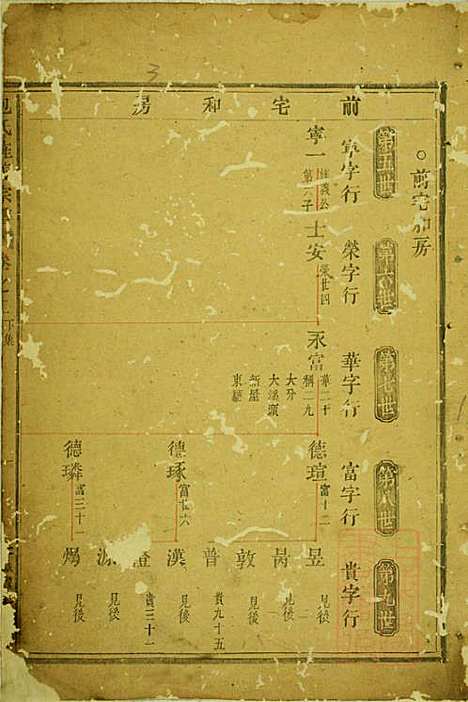 前宅和房
○前宅和房
第五世
第六世
第七世
第八世
第九世
寧字行
榮字行
華字行
富字行
貴字行
寧一
第六子
士安
榮廿四
永富
華二十
稱二九
大分
大溪頭
新屋
東經
德瑄
富十二
德琢
富廿六
德璘
富三十一
昱
見後
昺
見後
敦
見後
普
貴九十五
漢
見後
澄
貴三十一
源
見後
煬
見後
3